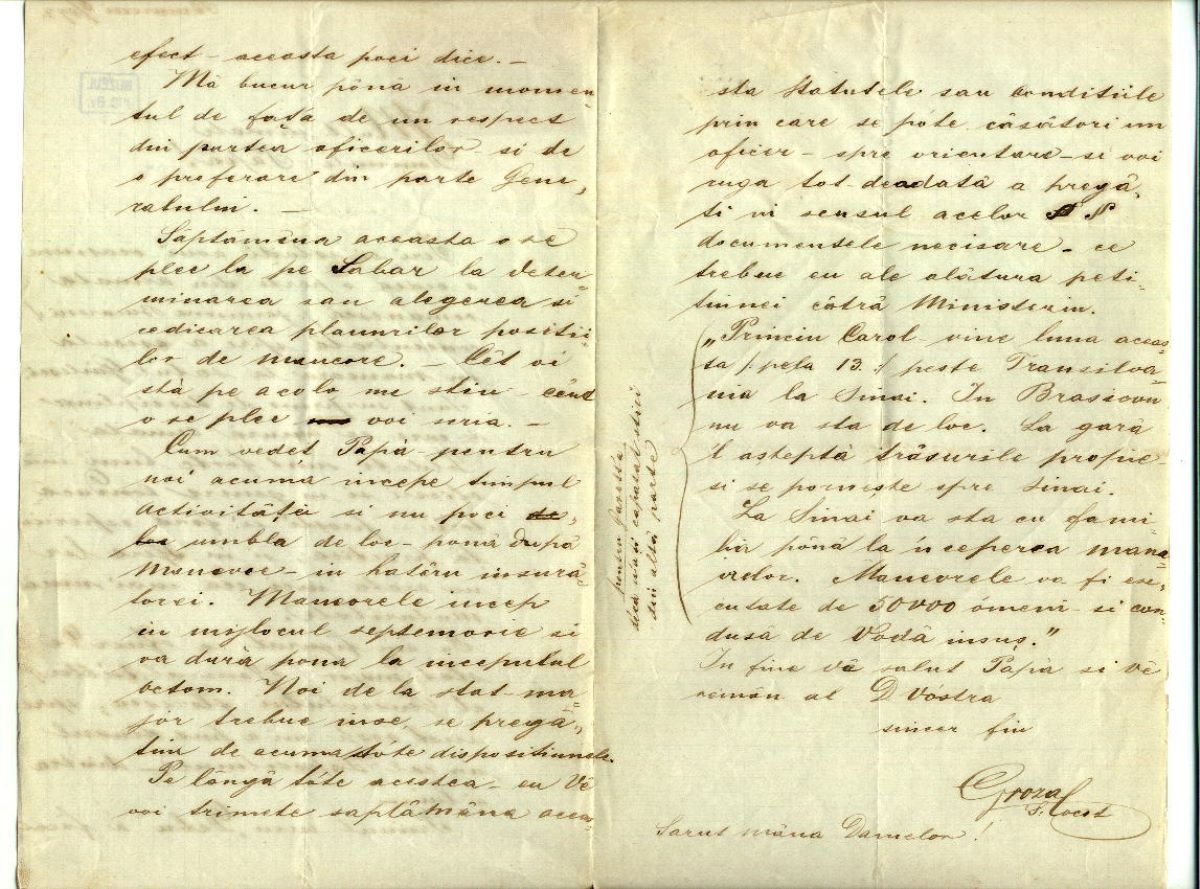 efect – acéasta poci dice. –
Mă bucur pănă in momen-
tul de față de un respect
din partea oficerilor si de
o preferare din parte Gene-
ralului. –
Săptămâna aceasta o se
plec la pe Sabar la deter-
minarea sau alegerea si
edicarea planurilor positii-
lor de mancore. – Cât oi
stă pe acolo nu stiu – când
o se plec voi scria. –
Cum vedet Papà – pentru
noi acumă incepe timpul
activităței si nu poci
umbla de loc – ponă după
manevre – in hatâru insură
torei. Maneorele incep
in mijlocul septemvrie si
va dură pona la inceputul
octom. Noi de la stat-ma-
jor trebue inse se pregă-
tim de acuma tóte dispositiunele.
Pe lângă tóte acestea – eu Vĕ
voi trimete saptămâna aceas
sta Statutele sau conditiile
prin care se póte căsători un
oficer – spre orientare – si voi
ruga tot-deodată a pregă-
ti in sensul acelor §§
documentele necisare – ce
trebue eu ale alătura peti-
tiunei cătră Ministeriu.
„Princiu Carol – vine luna aceas-
ta /: pela 13. :/ peste Transilva-
nia la Sinai. In Brassiovu
nu va sta de loc. La gară
'l asteptă trăsurile proprie –
si se porneste spre Sinai.
La Sinai va sta cu fami-
lia pónă la inceperea mane-
vrelor. Maneorele va fi ese-
cutate de 50000 ómeni – si con-
dusă de Vodă insuș."
In fine vĕ salut Papà si vĕ
remân al D Vostra
sincer fiu
Groza
Sarut mâna Damelor!
pentru Gazetta
din altă parte